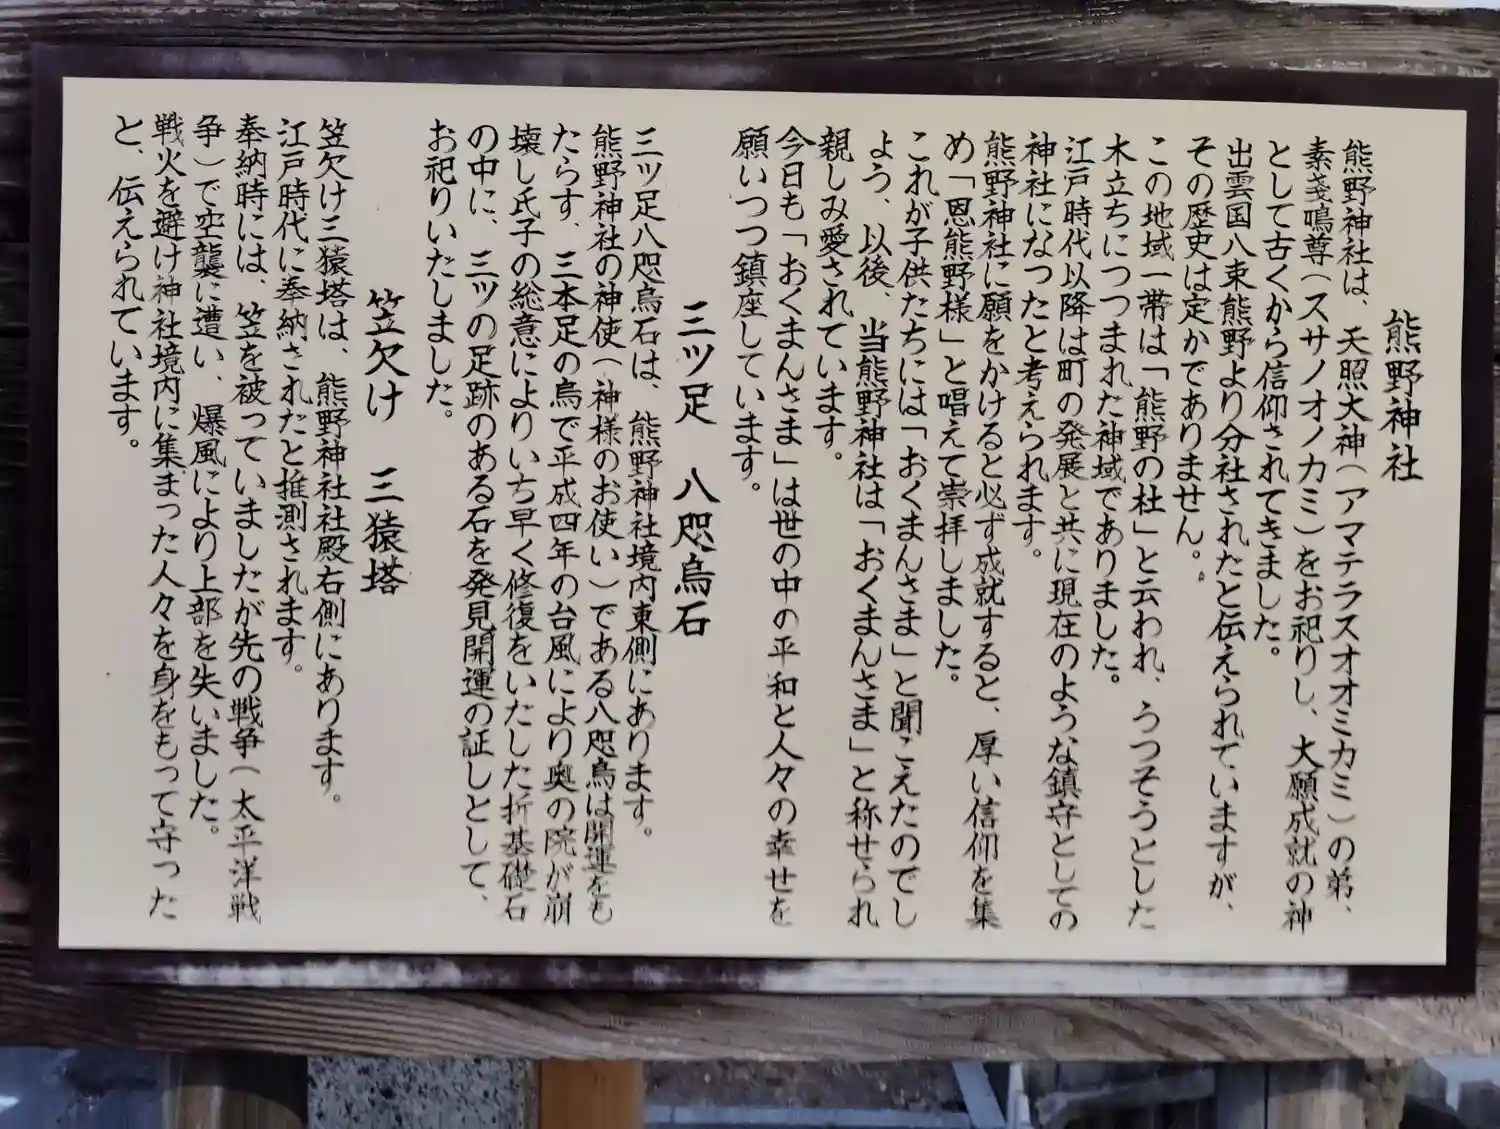 熊野神社
熊野神社は、天照大神(アマテラスオオミカミ)の弟、
素戔鳴尊(スサノオノカミ)をお祀りし、大願成就の神
として古くから信仰されてきました。
出雲国八束熊野より分社されたと伝えられていますが、
その歴史は定かでありません。
この地域一帯は「熊野の杜」と云われ、うつそうとした
木立ちにつつまれた神域でありました。
江戸時代以降は町の発展と共に現在のような鎮守としての
神社になつたと考えられます。
熊野神社に願をかけると必ず成就すると、厚い信仰を集
め「恩熊野様」と唱えて崇拝しました。
これが子供たちには「おくまんさま」と聞こえたのでし
よう、以後、当熊野神社は「おくまんさま」と称せられ
親しみ愛されています。
今日も「おくまんさま」は世の中の平和と人々の幸せを
願いつつ鎮座しています。
三ツ足 八咫烏石
三ツ足八咫烏石は、熊野神社境内東側にあります。
熊野神社の神使(神様のお使い)である八咫烏は開運をも
たらす、三本足の烏で平成四年の台風により奥の院が崩
壊し氏子の総意によりいち早く修復をいたした折基礎石
の中に、三ツの足跡のある石を発見開運の証しとして、
お祀りいたしました。
笠欠け 三猿塔
笠欠け三猿塔は、熊野神社社殿右側にあります。
江戸時代に奉納されたと推測されます。
奉納時には、笠を被っていましたが先の戦争(太平洋戦
争)で空襲に遭い、爆風により上部を失いました。
戦火を避け神社境内に集まった人々を身をもって守った
と、伝えられています。